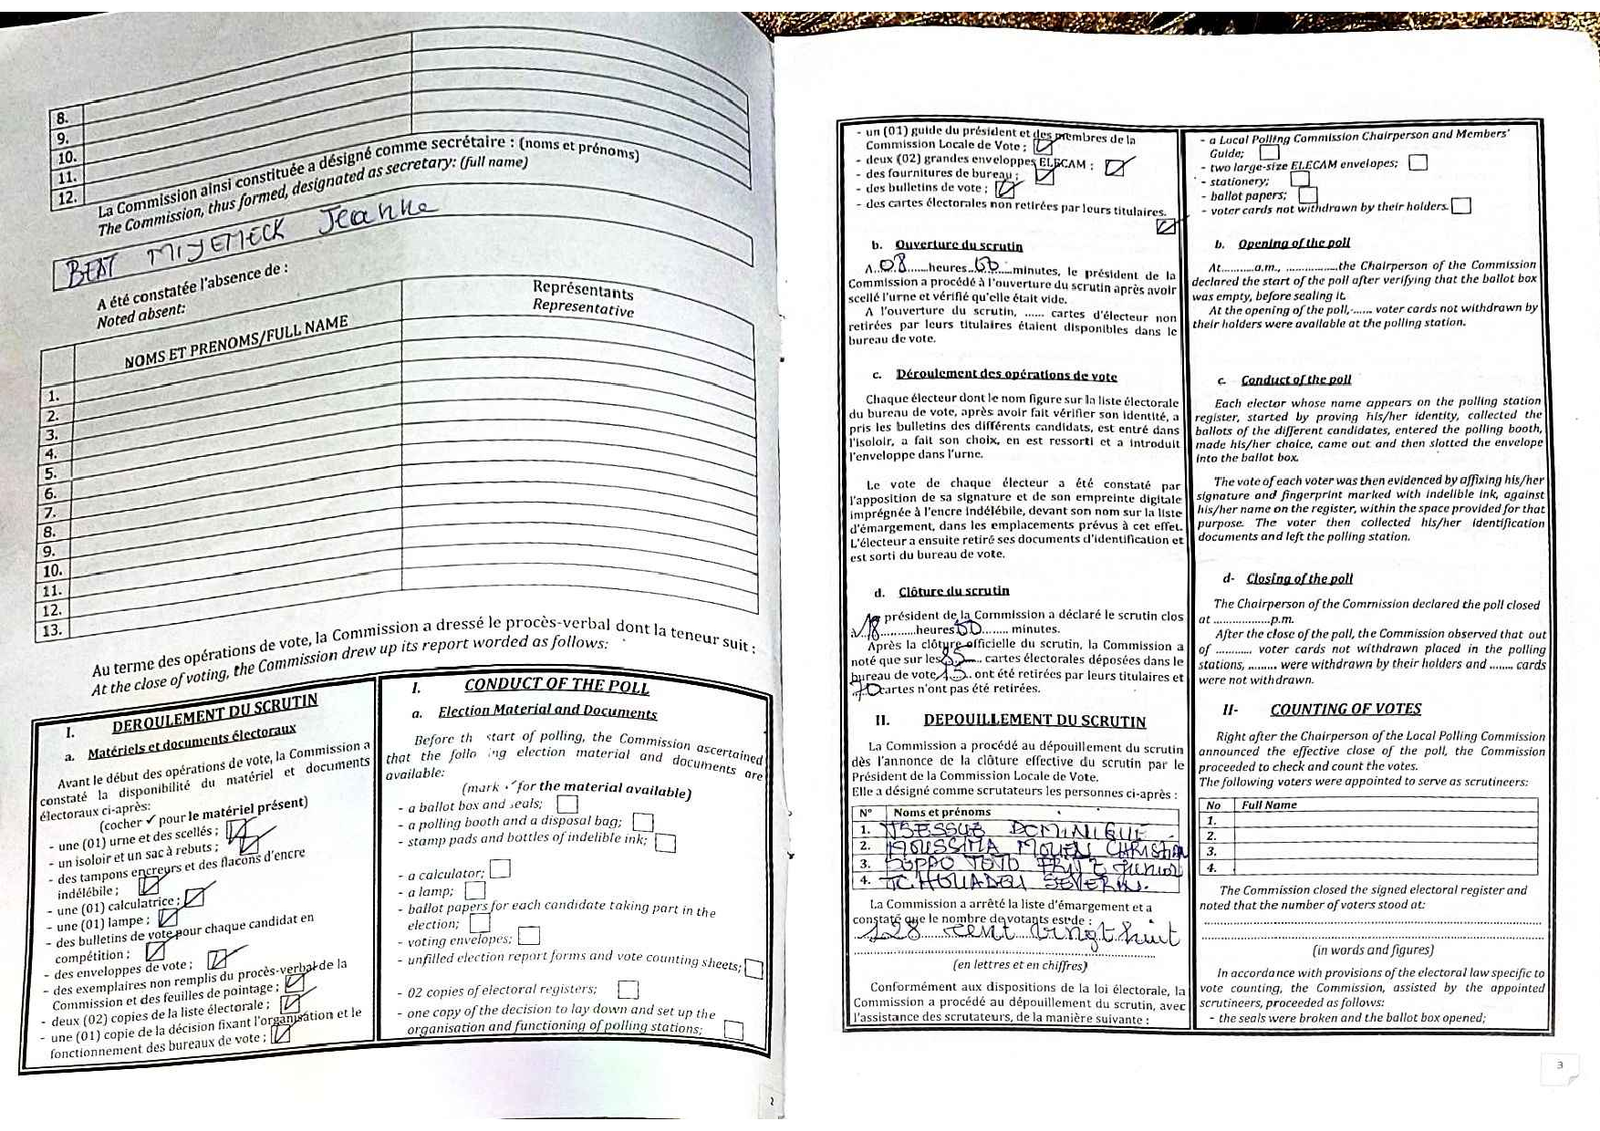 8.
9.
10.
11.
12.
La Commission ainsi constituée a désigné comme secrétaire : (noms et prénoms)
The Commission, thus formed, designated as secretary: (full name)
BEAT MIYEMECK Jeanne
A été constatée l'absence de :
Noted absent:
NOMS ET PRENOMS/FULL NAME
Représentants
Representative
1.
2.
3.
4.
5.
6.
7.
8.
9.
10.
11.
12.
13.
Au terme des opérations de vote, la Commission a dressé le procès-verbal dont la teneur suit :
At the close of voting, the Commission drew up its report worded as follows:
I. DEROULEMENT DU SCRUTIN
a. Matériels et documents électoraux
Avant le début des opérations de vote, la Commission a
constaté la disponibilité du matériel et documents
électoraux ci-après:
(cocher ✓ pour le matériel présent)
- une (01) urne et des scellés ;
- un isoloir et un sac à rebuts ;
- des tampons encreurs et des flacons d'encre
indélébile ;
- une (01) calculatrice ;
- une (01) lampe ;
- des bulletins de vote pour chaque candidat en
compétition ;
- des enveloppes de vote ;
- des exemplaires non remplis du procès-verbal de la
Commission et des feuilles de pointage ;
- deux (02) copies de la liste électorale ;
- une (01) copie de la décision fixant l'organisation et le
fonctionnement des bureaux de vote ;
I. CONDUCT OF THE POLL
a. Election Material and Documents
Before th start of polling, the Commission ascertained
that the follo ing election material and documents are
available:
(mark ✓ for the material available)
- a ballot box and seals;
- a polling booth and a disposal bag;
- stamp pads and bottles of indelible ink;
- a calculator;
- a lamp;
- ballot papers for each candidate taking part in the
election;
- voting envelopes;
- unfilled election report forms and vote counting sheets;
- 02 copies of electoral registers;
- one copy of the decision to lay down and set up the
organisation and functioning of polling stations;
2
- un (01) guide du président et des membres de la
Commission Locale de Vote ;
- deux (02) grandes enveloppes ELECAM ;
- des fournitures de bureau ;
- des bulletins de vote ;
- des cartes électorales non retirées par leurs titulaires.
b. Ouverture du scrutin
A..08......heures 00...minutes, le président de la
Commission a procédé à l'ouverture du scrutin après avoir
scellé l'urne et vérifié qu'elle était vide.
A l'ouverture du scrutin, ...... cartes d'électeur non
retirées par leurs titulaires étaient disponibles dans le
bureau de vote.
c. Déroulement des opérations de vote
Chaque électeur dont le nom figure sur la liste électorale
du bureau de vote, après avoir fait vérifier son identité, a
pris les bulletins des différents candidats, est entré dans
l'isoloir, a fait son choix, en est ressorti et a introduit
l'enveloppe dans l'urne.
Le vote de chaque électeur a été constaté par
l'apposition de sa signature et de son empreinte digitale
imprégnée à l'encre indélébile, devant son nom sur la liste
d'émargement, dans les emplacements prévus à cet effet.
L'électeur a ensuite retiré ses documents d'identification et
est sorti du bureau de vote.
d. Clôture du scrutin
président de la Commission a déclaré le scrutin clos
18..........heures 00........ minutes.
Après la clôture officielle du scrutin, la Commission a
noté que sur les 85.... cartes électorales déposées dans le
bureau de vote, 15.. ont été retirées par leurs titulaires et
70 cartes n'ont pas été retirées.
II. DEPOUILLEMENT DU SCRUTIN
La Commission a procédé au dépouillement du scrutin
dès l'annonce de la clôture effective du scrutin par le
Président de la Commission Locale de Vote.
Elle a désigné comme scrutateurs les personnes ci-après :
N° Noms et prénoms
1. DOMINIQUE
2. MOUSSIMA MOUEN CHRISTIAN
3. Junior
4. TCHOUADEU SEVERIN.
La Commission a arrêté la liste d'émargement et a
constaté que le nombre de votants est de :
128 cent vingt huit
(en lettres et en chiffres)
Conformément aux dispositions de la loi électorale, la
Commission a procédé au dépouillement du scrutin, avec
l'assistance des scrutateurs, de la manière suivante :
- a Local Polling Commission Chairperson and Members'
Guide;
- two large-size ELECAM envelopes;
- stationery;
- ballot papers;
- voter cards not withdrawn by their holders.
b. Opening of the poll
At...........a.m., ................the Chairperson of the Commission
declared the start of the poll after verifying that the ballot box
was empty, before sealing it.
At the opening of the poll,....... voter cards not withdrawn by
their holders were available at the polling station.
c. Conduct of the poll
Each elector whose name appears on the polling station
register, started by proving his/her identity, collected the
ballots of the different candidates, entered the polling booth,
made his/her choice, came out and then slotted the envelope
into the ballot box.
The vote of each voter was then evidenced by affixing his/her
signature and fingerprint marked with indelible ink, against
his/her name on the register, within the space provided for that
purpose. The voter then collected his/her identification
documents and left the polling station.
d- Closing of the poll
The Chairperson of the Commission declared the poll closed
at ..................p.m.
After the close of the poll, the Commission observed that out
of ........... voter cards not withdrawn placed in the polling
stations, ........ were withdrawn by their holders and ....... cards
were not withdrawn.
II- COUNTING OF VOTES
Right after the Chairperson of the Local Polling Commission
announced the effective close of the poll, the Commission
proceeded to check and count the votes.
The following voters were appointed to serve as scrutineers:
No Full Name
1.
2.
3.
4.
The Commission closed the signed electoral register and
noted that the number of voters stood at:
(in words and figures)
In accordance with provisions of the electoral law specific to
vote counting, the Commission, assisted by the appointed
scrutineers, proceeded as follows:
- the seals were broken and the ballot box opened;
3